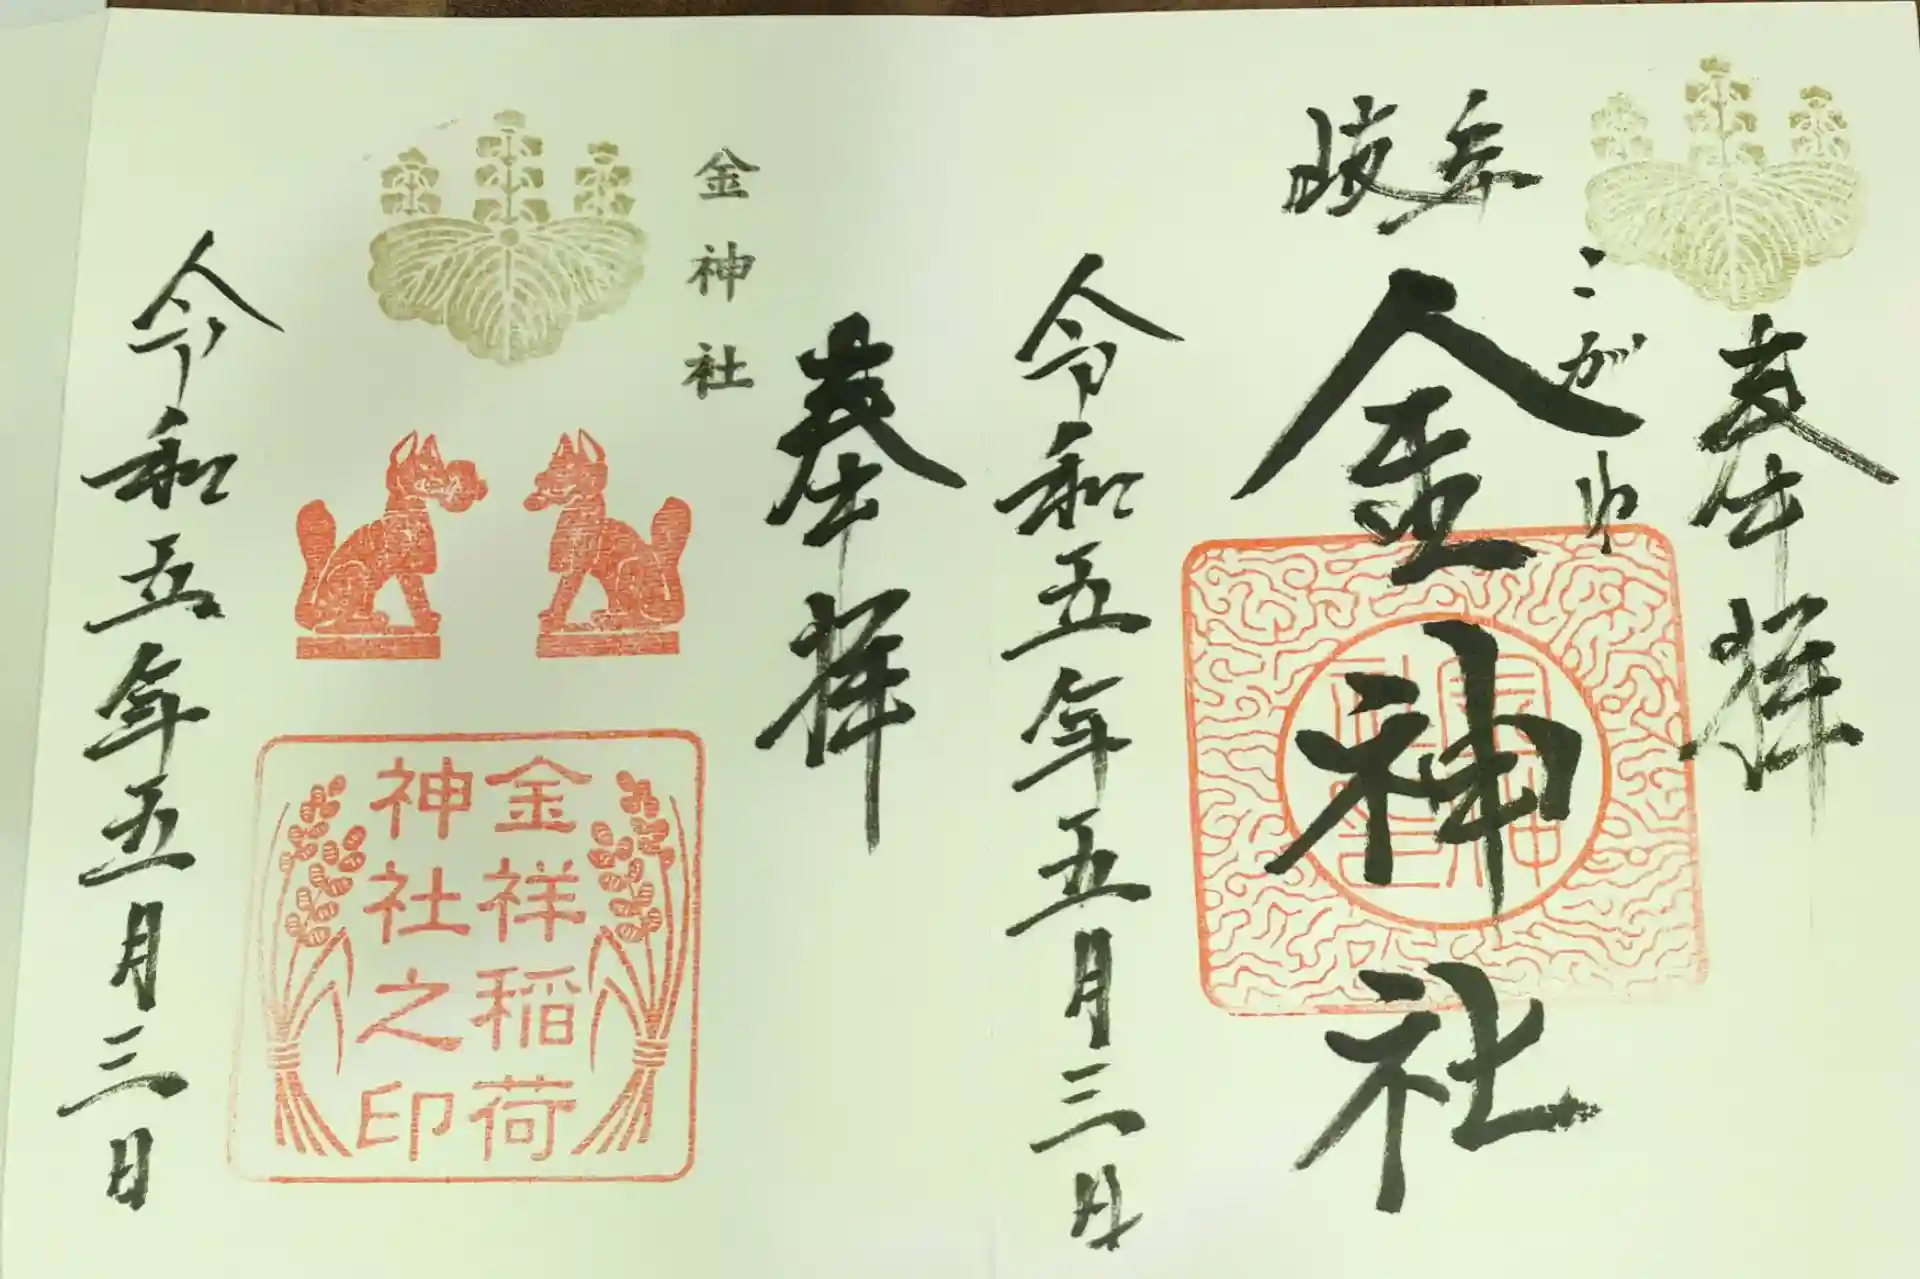 奉拝
岐阜
こがね
金神社
令和五年五月三日
奉拝
金神社
金祥稲荷
神社之印
令和五年五月三日